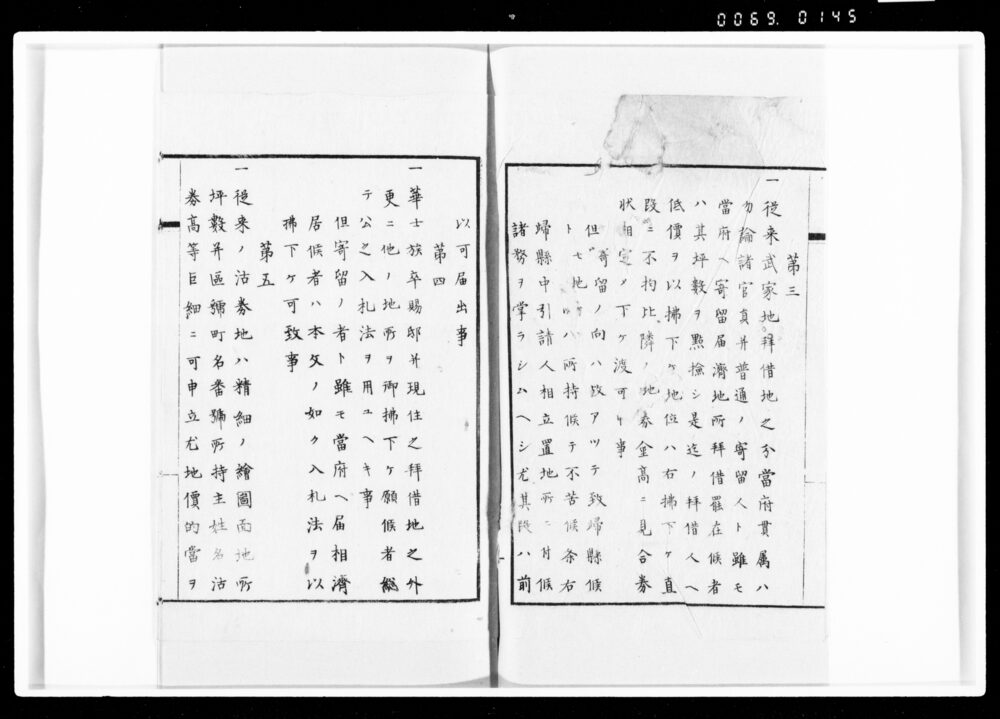 0069. 0145
第三
一 従来武家地拝借地之分當府貫属ハ
勿論諸官員并普通ノ寄留人ト雖モ
當府ヘ寄留届濟地所拝借罷在候者
ハ其坪數ヲ點撿シ是迄ノ拝借人ヘ
低價ヲ以拂下ケ地位ハ右拂下ケ直
段ニ不拘比隣ノ地券金高ニ見合券
状相定メ下ケ渡可申事
但寄留ノ向ハ故アツテ致歸縣候
トモ地所ハ所持候テ不苦候条右
歸縣中引請人相立置地所ニ付候
諸務ヲ掌ラシムヘシ尤其段ハ前
以可届出事
第四
一 華士族卒賜邸并現住之拝借地之外
更ニ他ノ地所ヲ御拂下ケ願候者総
テ公之入札法ヲ用ユヘキ事
但寄留ノ者ト雖モ當府ヘ届相濟
居候者ハ本文ノ如ク入札法ヲ以
拂下ケ可致事
第五
一 従来ノ沽券地ハ精細ノ繪圖面地所
坪數并區號町名番號所持主姓名沽
券高等巨細ニ可申立尤地價的當ヲ